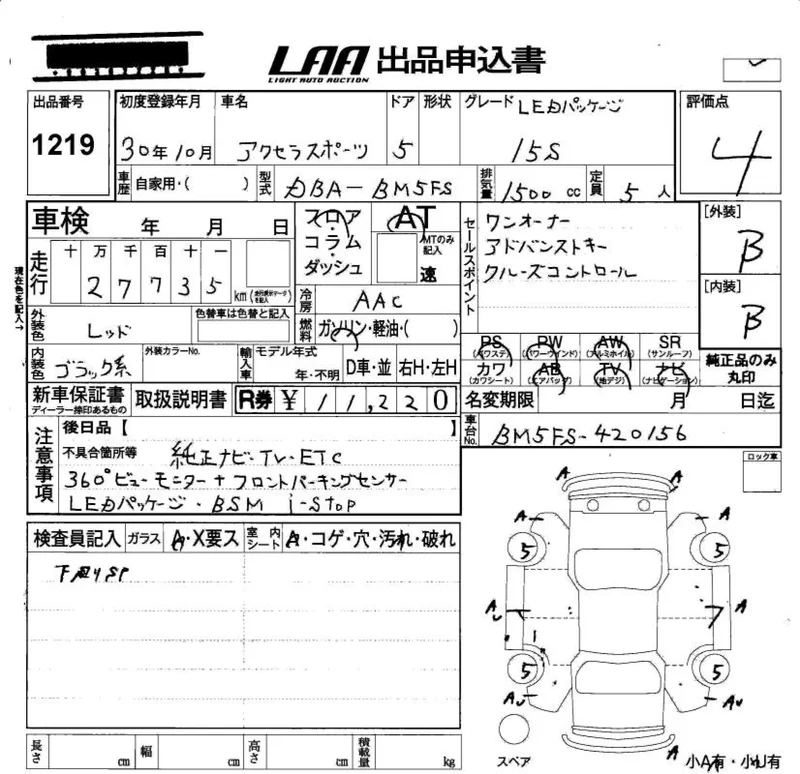 LAA 出品申込書
LIGHT AUTO AUCTION
出品番号 1219
初度登録年月 30年10月
車名 アクセラスポーツ
ドア 5
形状
グレード LEDパッケージ
15S
評価点 4
車歴 自家用・( )
型式 DBA-BM5FS
排気量 1500 cc
定員 5 人
車検 年 月 日
フロア・コラム・ダッシュ
AT
MTのみ記入
速
セールスポイント
ワンオーナー
アドバンストキー
クルーズコントロール
[外装]
B
[内装]
B
現在色を記入→
走行 十 万 千 百 十 一
2 7 7 3 5 km
冷房 AAC
外装色 レッド
色替車は色替と記入
燃料 ガソリン・軽油・( )
内装色 ブラック系
外装カラーNo.
輸入車 モデル年式
年・不明
D車・並 右H・左H
PS (パワステ) PW (パワーウインド) AW (アルミホイル) SR (サンルーフ)
カワ (カワシート) AB (エアバッグ) TV (地デジ) ナビ (ナビゲーション)
純正品のみ丸印
新車保証書
ディーラー捺印あるもの
取扱説明書
R券 ¥ 11,220
名変期限 月 日迄
車台No. BM5FS-420156
注意事項
後日品【 】
不具合箇所等 純正ナビ・TV・ETC
360°ビューモニター+フロントパーキングセンサー
LEDパッケージ・BSM i-stop
ロック車
検査員記入 ガラス A・X要ス 室内シート A・コゲ・穴・汚れ・破れ
下回りSP
A A
A A
5 5
AU A
5 5
AU AU
スペア
A
小A有・小U有
長さ cm 幅 cm 高さ cm 積載量 kg